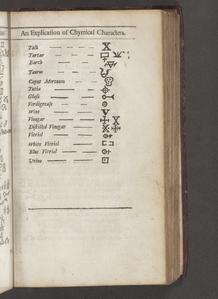 An Explication of Chymical Characters.
Talk
Tartar
Earth
Taurus
Caput Mortuum
Tutia
Glass
Verdigrease
Wine
Vinegar
Distilled Vinegar
Vitriol
White Vitriol
Blue Vitriol
Urine